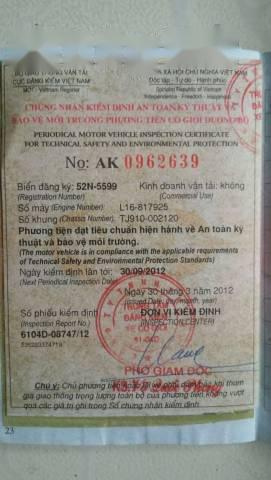 BỘ GIAO THÔNG VẬN TẢI
CỤC ĐĂNG KIỂM VIỆT NAM
MOT - Vietnam Register
CỘNG HÒA XÃ HỘI CHỦ NGHĨA VIỆT NAM
Độc lập - Tự do - Hạnh phúc
Socialist Republic of Vietnam
Independence - Freedom - Happiness
CHỨNG NHẬN KIỂM ĐỊNH AN TOÀN KỸ THUẬT VÀ
BẢO VỆ MÔI TRƯỜNG PHƯƠNG TIỆN CƠ GIỚI ĐƯỜNG BỘ
PERIODICAL MOTOR VEHICLE INSPECTION CERTIFICATE
FOR TECHNICAL SAFETY AND ENVIRONMENTAL PROTECTION
No: AK 0962639
Biển đăng ký: 52N-5599 Kinh doanh vận tải: không
(Registration Number) (Commercial Use)
Số máy (Engine Number) L16-817925
Số khung (Chassis Number) TJ910-002120
Phương tiện đạt tiêu chuẩn hiện hành về An toàn kỹ
thuật và bảo vệ môi trường.
(The motor vehicle is in compliance with the applicable requirements
of Technical Safety and Environmental Protection Standards)
Ngày kiểm định lần tới: 30/09/2012
(Next Periodical Inspection Date)
Ngày 30 tháng 3 năm 2012
(Issued Date: day/month, year)
Số phiếu kiểm định ĐƠN VỊ KIỂM ĐỊNH
(Inspection Report No.) (INSPECTION CENTER)
6104D-08747/12
TRUNG TÂM
ĐĂNG KIỂM
XE CƠ GIỚI
61-04D
PHÓ GIÁM ĐỐC
Chú ý: Chủ phương tiện phải bảo vệ phương tiện khi tham
gia giao thông trong lượng toàn bộ của phương tiện không vượt
quá các giá trị ghi trong Sổ chứng nhận kiểm định.
23